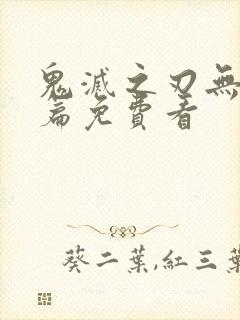 鬼滅之刃無
篇免費看
葵二葉,紅三葉